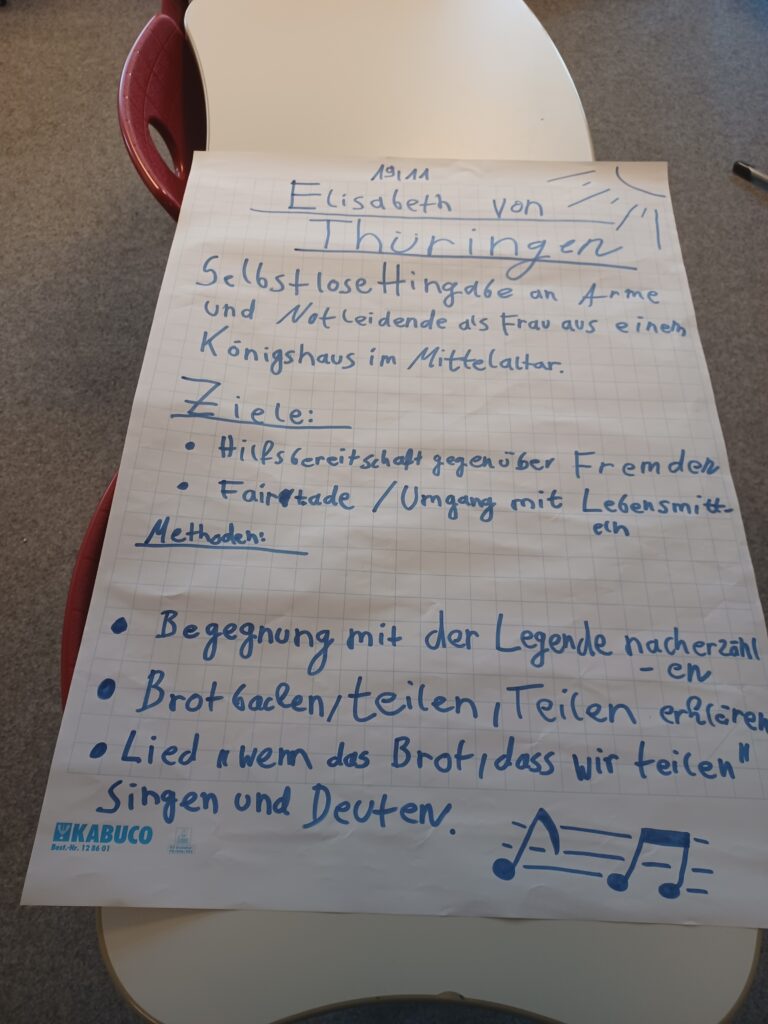 19/11
Elisabeth von
Thüringen
Selbstlose Hingabe an Arme
und Notleidende als Frau aus einem
Königshaus im Mittelaltar.
Ziele:
• Hilfsbereitschaft gegenüber Fremden
• Fairtade / Umgang mit Lebensmitt-
eln
Methoden:
• Begegnung mit der Legende nacherzähl
- en
• Brot backen, teilen, Teilen erklären
• Lied "wenn das Brot, dass wir teilen"
Singen und Deuten.
KABUCO
Best.-Nr. 12 86 01